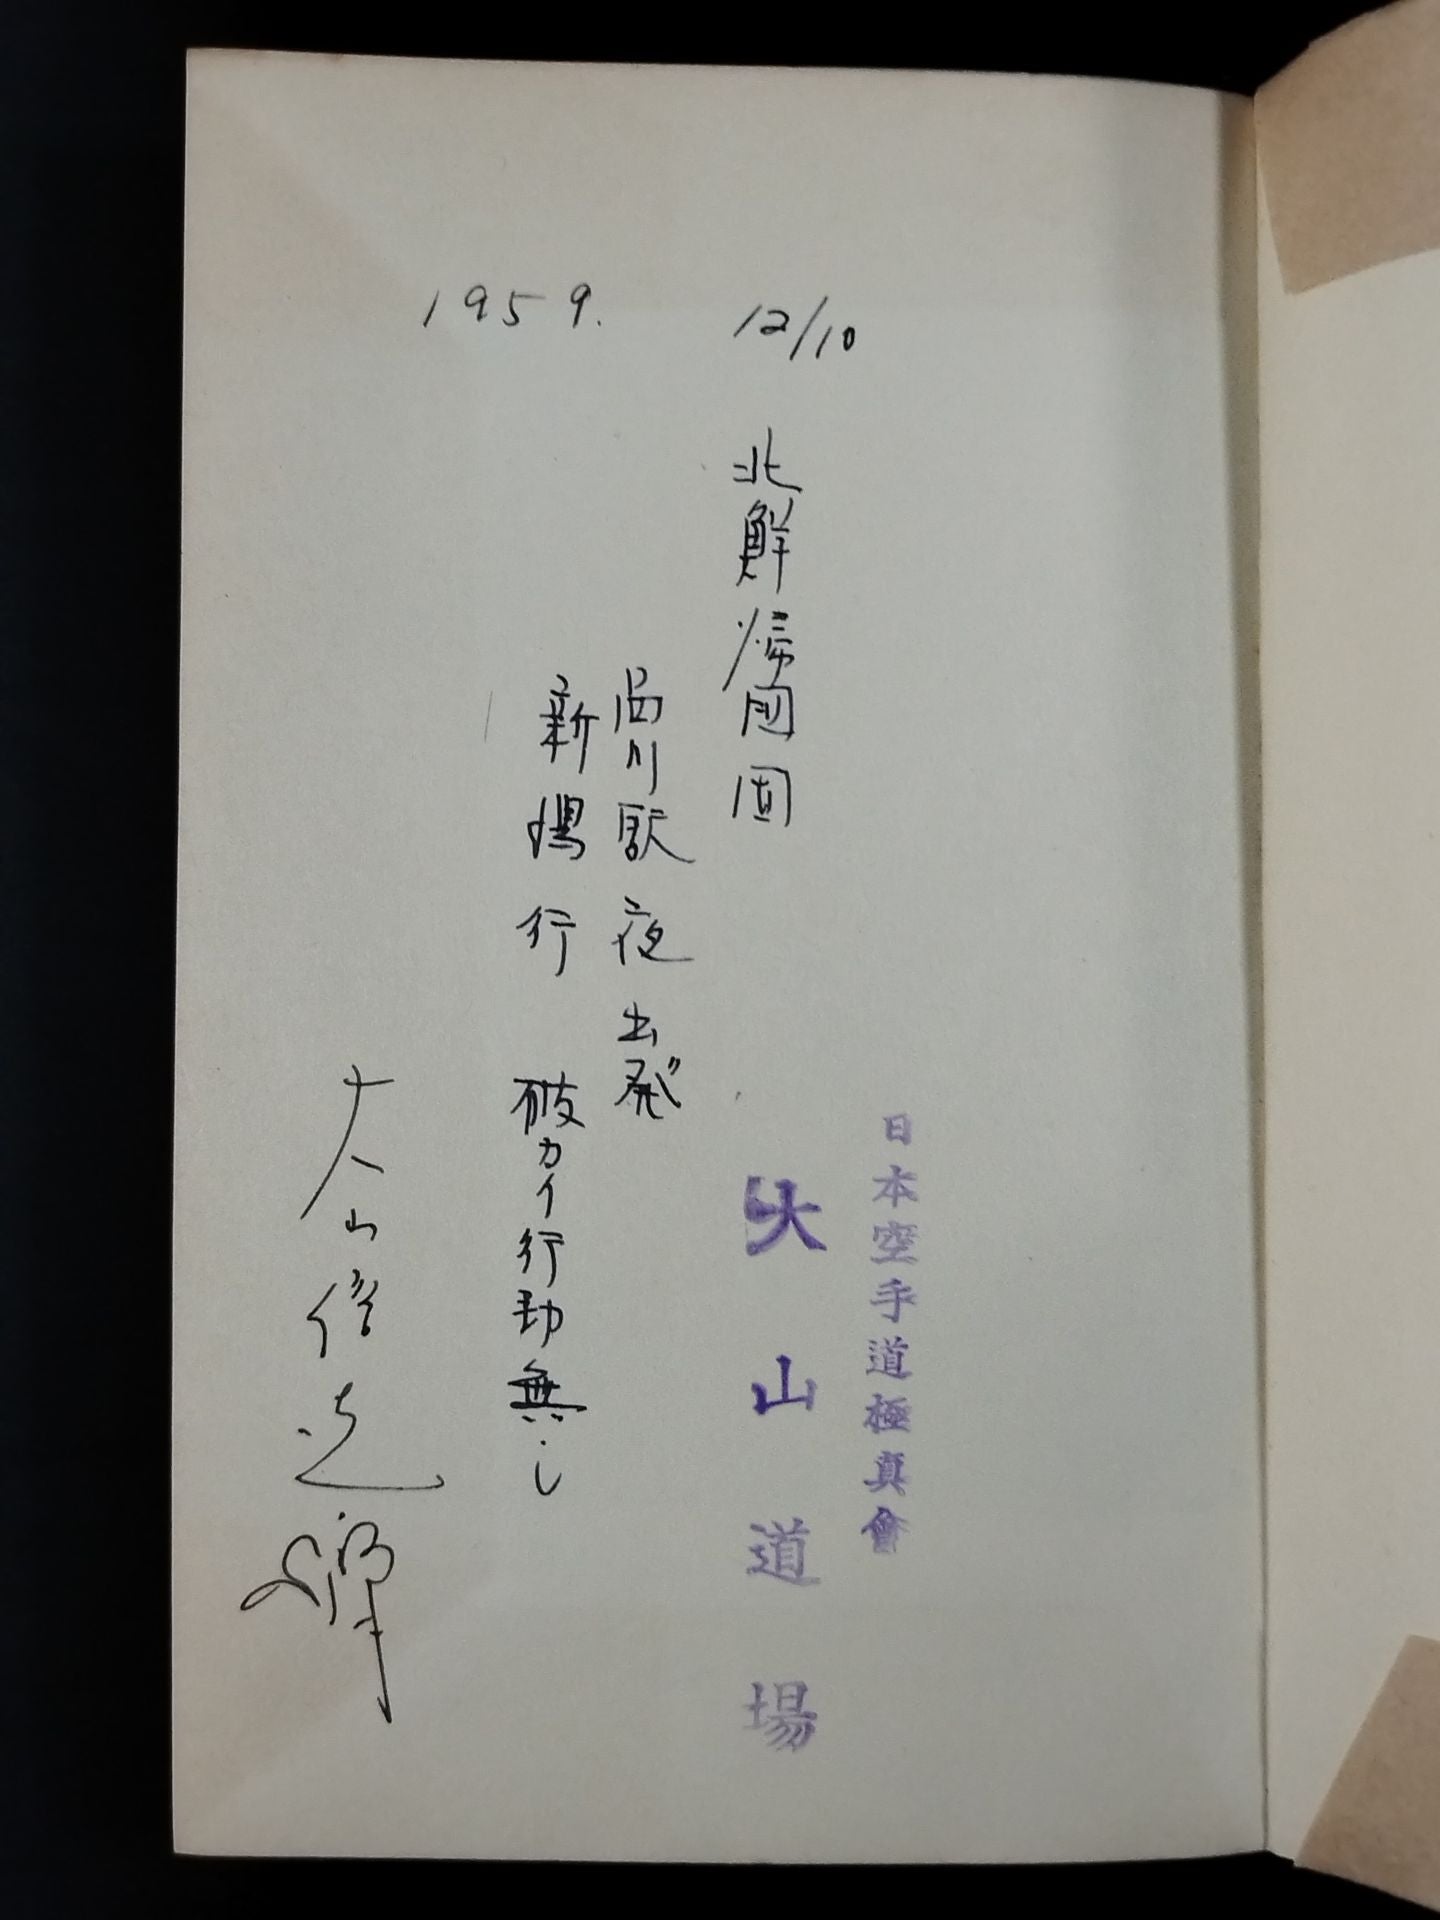 1959. 12/10
日本空手道極真會
大山道場
北鮮帰国団
品川駅夜出発
新潟行 破カイ行動無し
大山倍達